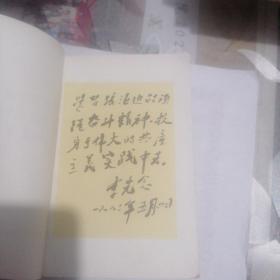 学习张海迪的顽
强奋斗精神，投
身于伟大的共产
主义实践中去。
李先念
一九八三年三月